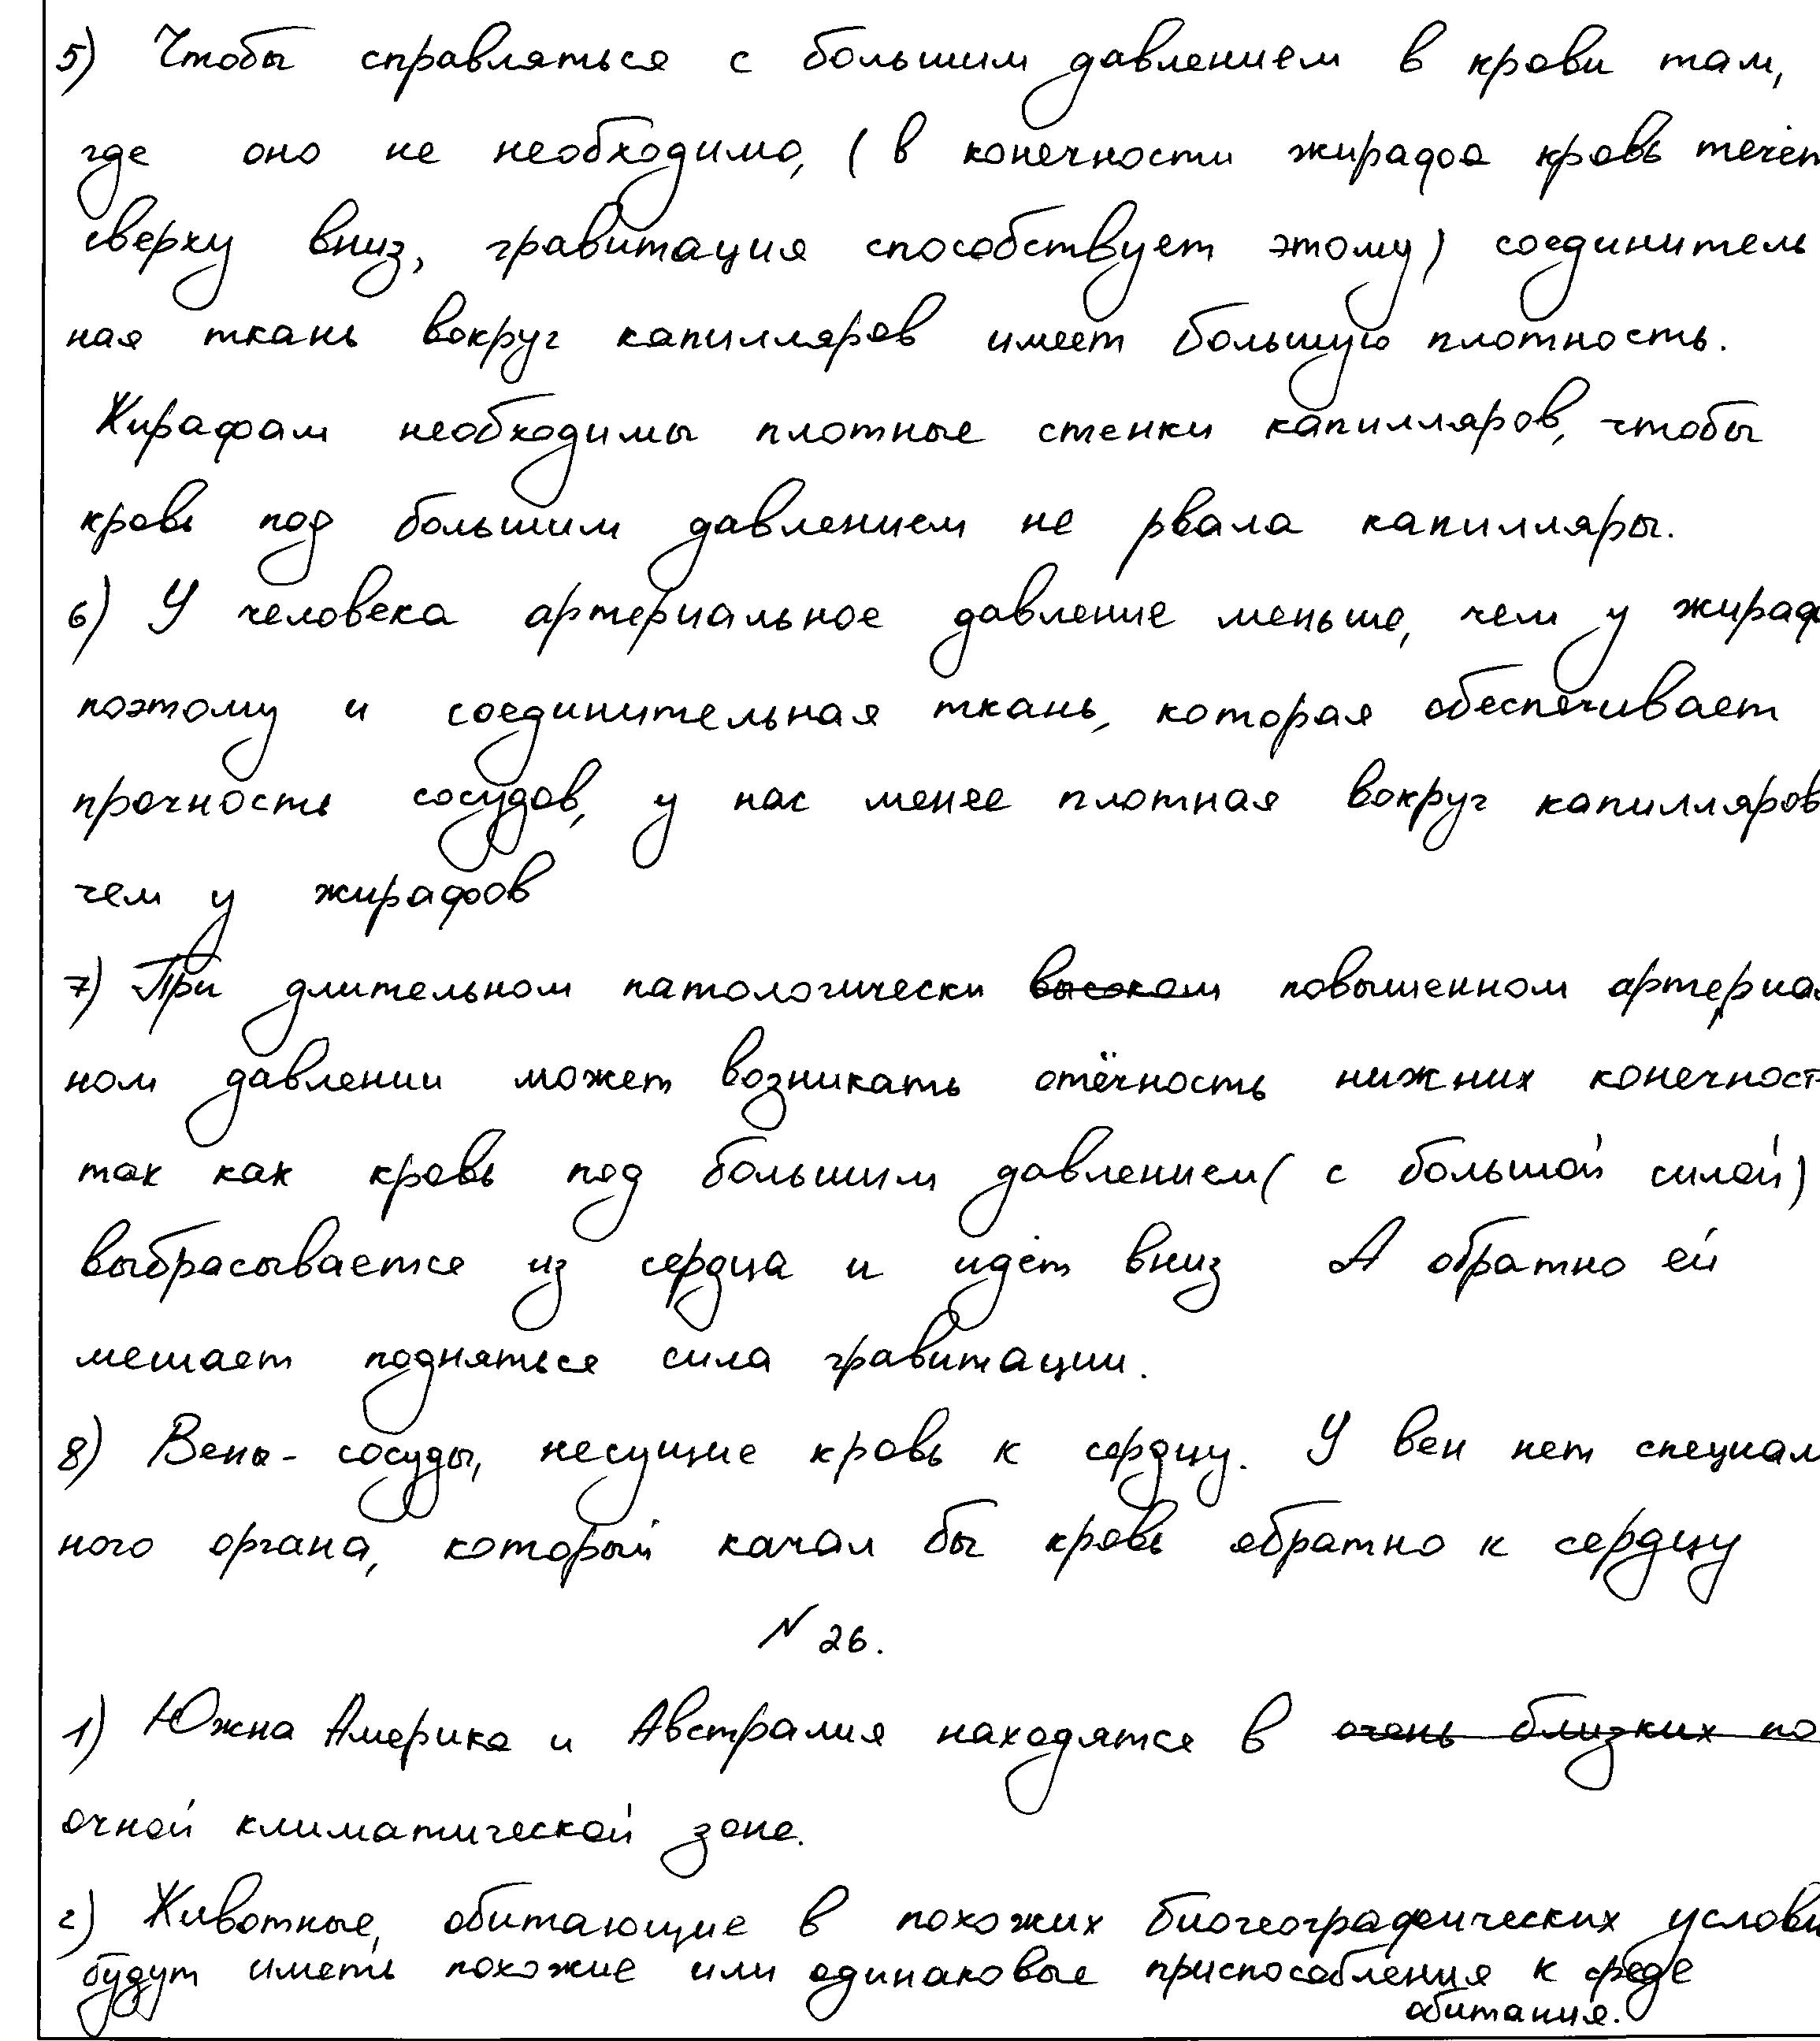 5) Чтобы справляться с большим давлением в крови там,
где оно не необходимо, (в конечности жирафа кровь течёт
сверху вниз, гравитация способствует этому) соединитель
ная ткань вокруг капилляров имеет большую плотность.
Жирафам необходимы плотные стенки капилляров, чтобы
кровь под большим давлением не рвала капилляры.
6) У человека артериальное давление меньше, чем у жираф
поэтому и соединительная ткань, которая обеспечивает
прочность сосудов, у нас менее плотная вокруг капилляров
чем у жирафов
7) При длительном патологически высоком повышенном артериал
ном давлении может возникать отёчность нижних конечност
так как кровь под большим давлением (с большой силой)
выбрасывается из сердца и идёт вниз А обратно ей
мешает подняться сила гравитации.
8) Вены - сосуды, несущие кровь к сердцу. У вен нет специал
ного органа, который качал бы кровь обратно к сердцу
N 26.
1) Южна Америка и Австралия находятся в очень близких по
очной климатической зоне.
2) Животные, обитающие в похожих биогеографических услови
будут иметь похожие или одинаковые приспособления к среде
обитания.